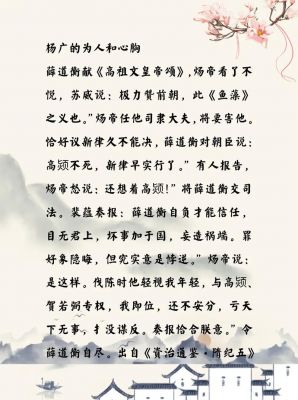 杨广的为人和心胸
薛道衡献《高祖文皇帝颂》,炀帝看了不
悦，苏威说：极力赞前朝，此《鱼藻》
之义也。”炀帝任他司隶大夫，将要害他。
恰好议新律久不能决，薛道衡对朝臣说：
高颎不死，新律早实行了。”有人报告，
炀帝怒说：还想着高颎!”将薛道衡交司
法。裴蕴奏报：薛道衡自负才能信任，
目无君上，坏事加于国，妄造祸端。罪
好象隐晦，但究实意是悖逆。”炀帝说：
是这样。伐陈时他轻视我年轻，与高颎、
贺若弼专权，我即位，还不安分，亏天
下无事，才没谋反。奏报恰合朕意。”令
薛道衡自尽。出自《资治通鉴·隋纪五》